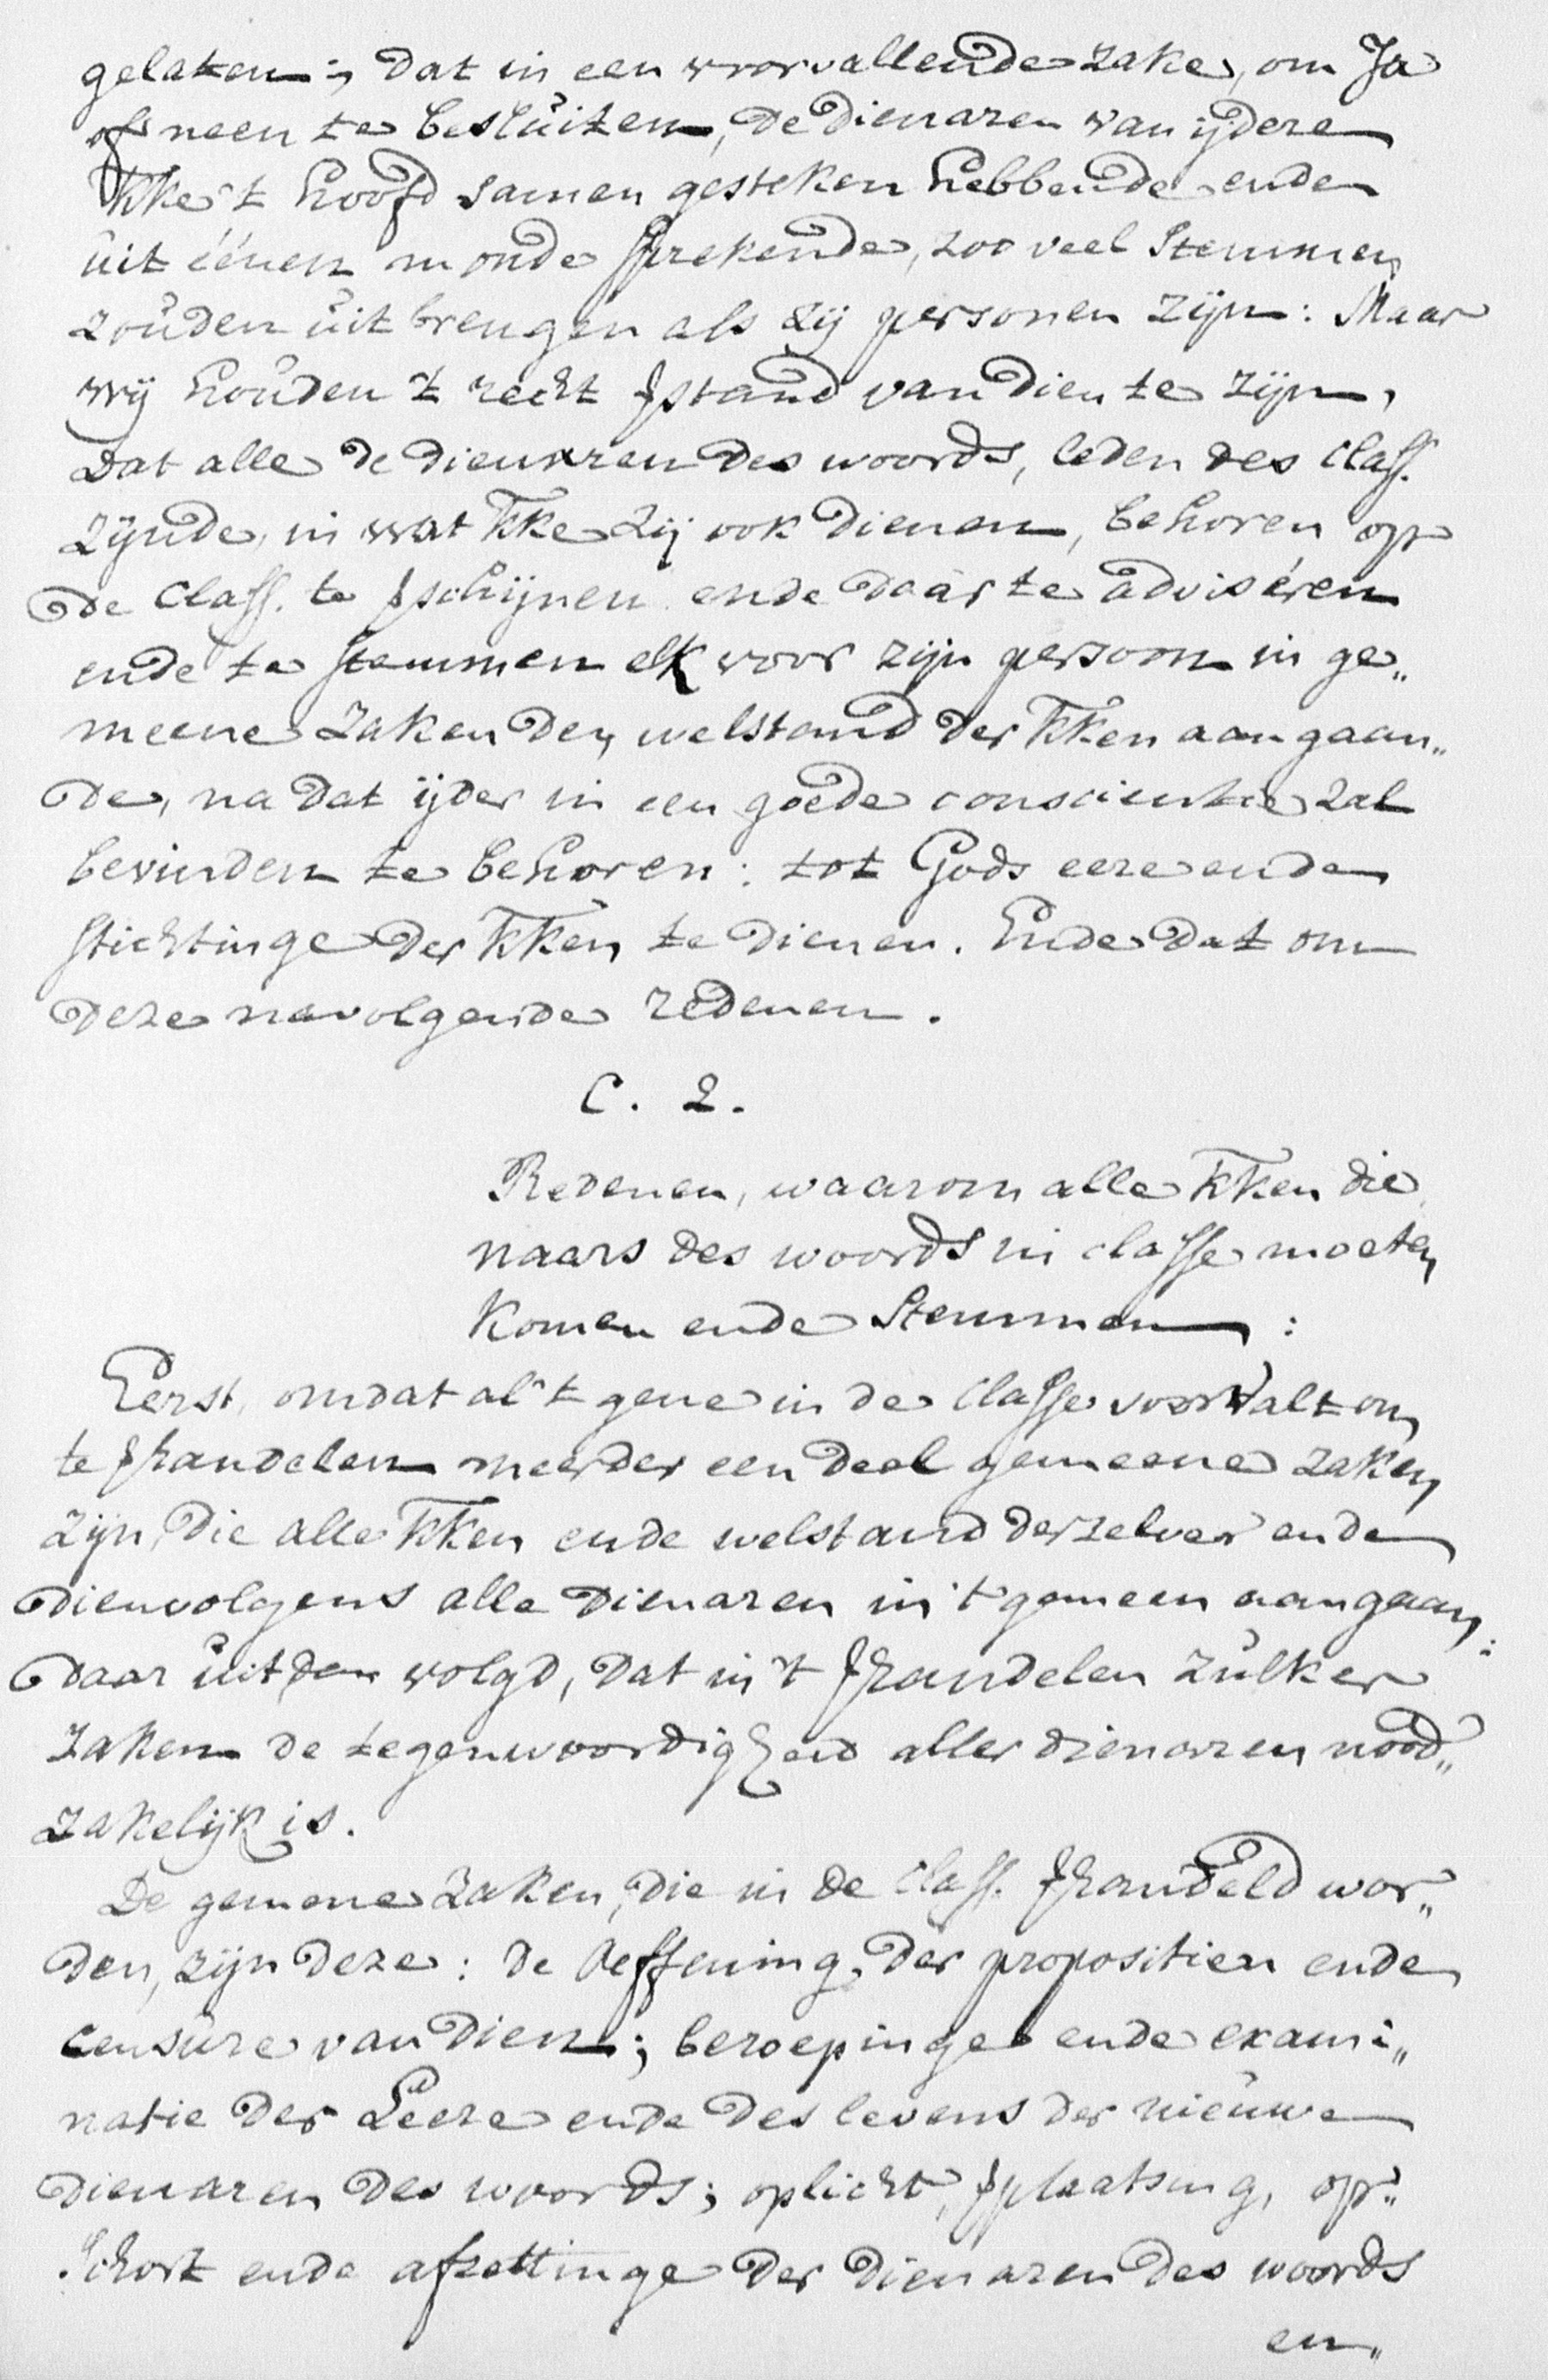 gelaten; dat in een voorvallende zake, om Ja
of neen te besluiten, de dienaren van ijdere
kke 't hoofd samen gesteken hebbende ende
uit éénen monde sprekende, zoo veel stemmen
zouden uitbrengen als zij personen zijn: Maar
wij houden 't recht verstand van dien te zijn,
dat alle de dienaren des woords, leden des class.
zijnde, in wat kke zij ook dienen, behoren op
de class. te verschijnen ende daar te adviséren
ende te stemmen elk voor zijn persoon in ge„
meene zaken den welstand der kken aangaan„
de, na dat ijder in een goede conscientie zal
bevinden te behoren: tot Gods eere ende
stichtinge der kken te dienen. Ende dat om
deze navolgende redenen.
C. 2.
Redenen, waarom alle kken die
naars des woords in classe moeten
komen ende stemmen:
Eerst, omdat al 't gene in de classe voorvalt om
te verhandelen meerder een deel gemeene zaken
zijn, die alle kken ende welstand derzelver ende
dienvolgens alle dienaren in 't gemeen aangaan:
daar uit volgd, dat in 't verhandelen zulker
zaken de tegenwoordigheid aller dienaren nood„
zakelijk is.
De gemene zaken, die in de class. verhandeld wor„
den, zijn deze: de oeffening der propositien ende
censure van dien; beroepinge ende exami„
natie der Leere ende des levens der nieuwe
dienaren des woords; oplicht, verplaatsing, op„
schort ende afzettinge der dienaren des woords
en„